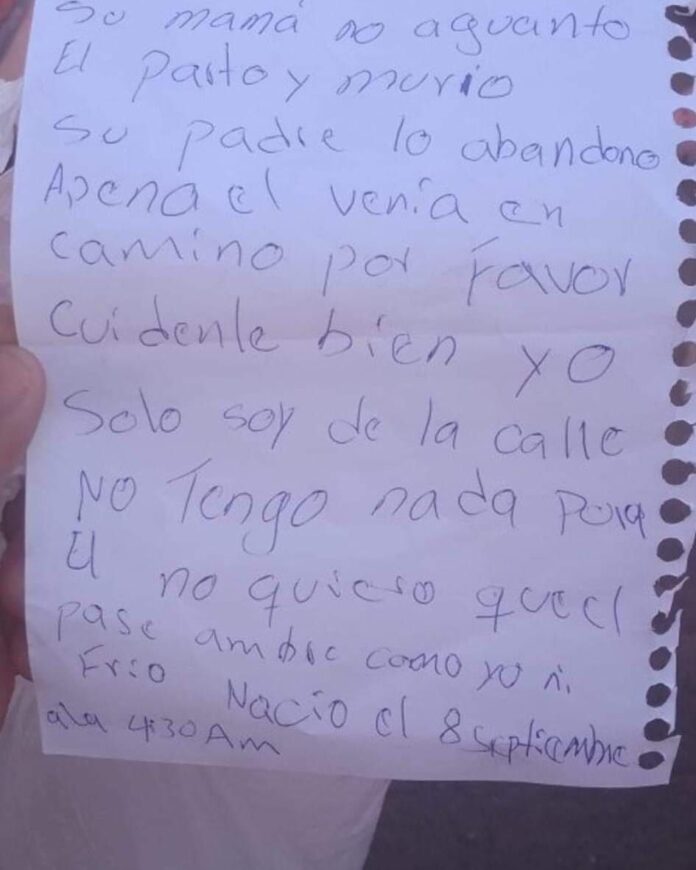 Su mamá no aguanto
El Parto y murio
su padre lo abandono
Apena el venía en
camino por Favor
Cuidenle bien yo
Solo soy de la calle
No Tengo nada para
El no quiero que el
pase ambre como yo ni
Frio Nacio el 8 septiembre
ala 4:30 Am